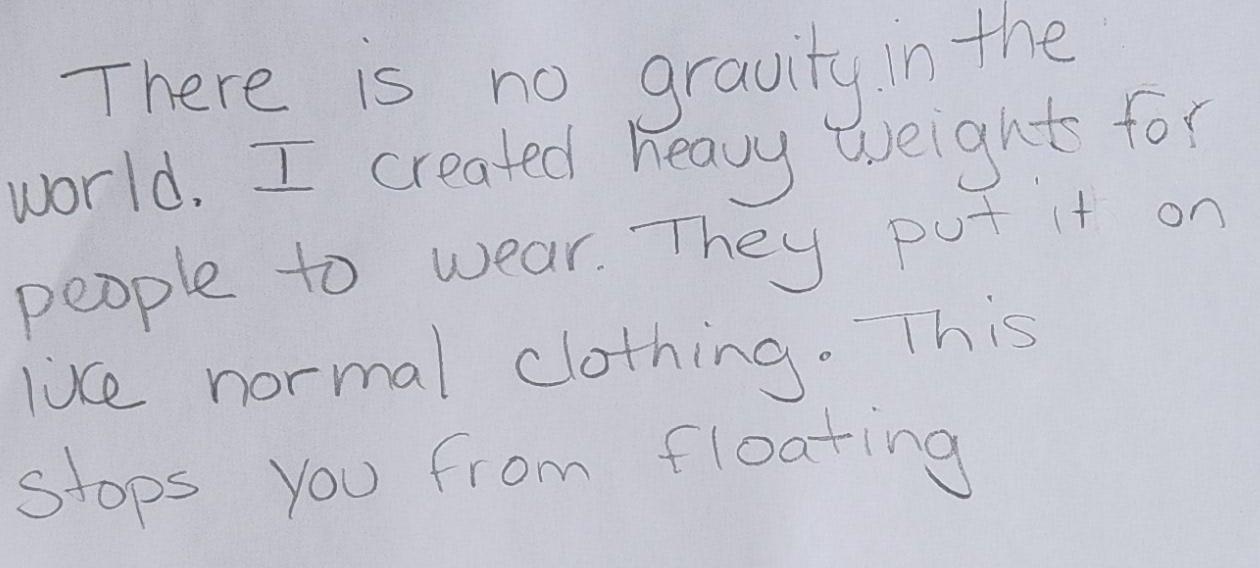 There is no gravity in the
world. I created heavy weights for
people to wear. They put it on
like normal clothing. This
stops you from floating